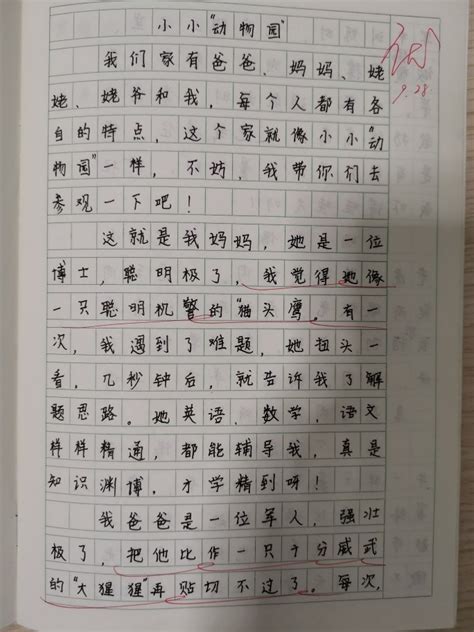 小小“动物园”
我们家有爸爸、妈妈、姥
姥、姥爷和我，每个人都有各
自的特点，这个家就像小小“动
物园”一样，不妨，我带你们去
参观一下吧！
这就是我妈妈，她是一位
博士，聪明极了，我觉得她像
一只聪明机警的“猫头鹰”。有一
次，我遇到了难题，她扭头一
看，几秒钟后，就告诉我了解
题思路。她英语、数学、语文
样样精通，都能辅导我，真是
知识渊博，才学精到呀！
我爸爸是一位军人，强壮
极了，把他比作一只十分威武
的“大猩猩”再贴切不过了。每次，
9.28